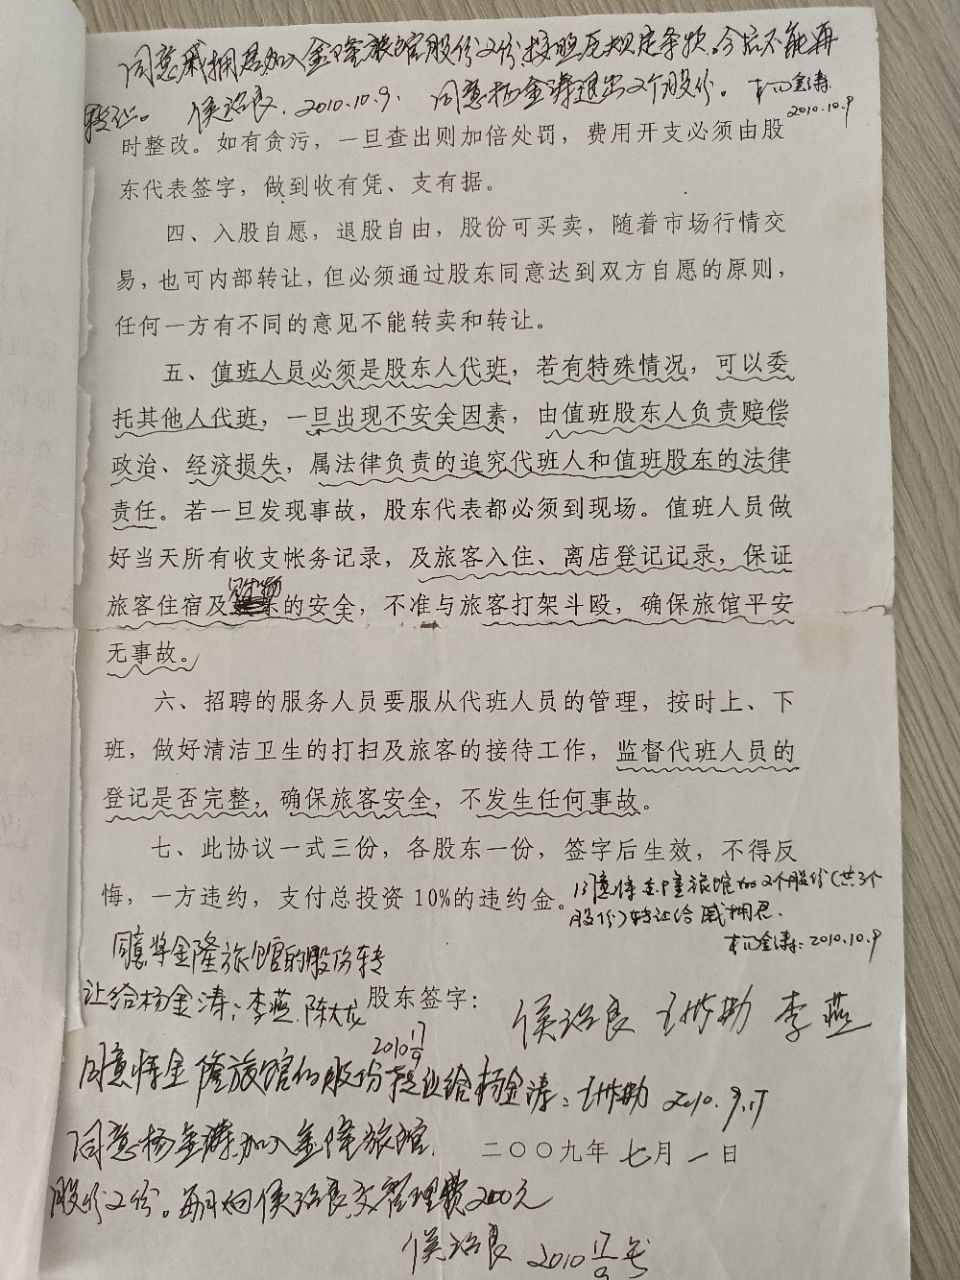 同意戚拥君加入金隆旅馆股份2份,按照原规定条款。今后不能再
转让。 侯治良. 2010.10.9. 同意杨金涛退出2个股份。 杨金涛
2010.10.9
时整改。如有贪污，一旦查出则加倍处罚，费用开支必须由股
东代表签字，做到收有凭、支有据。
四、入股自愿，退股自由，股份可买卖，随着市场行情交
易，也可内部转让，但必须通过股东同意达到双方自愿的原则，
任何一方有不同的意见不能转卖和转让。
五、值班人员必须是股东人代班，若有特殊情况，可以委
托其他人代班，一旦出现不安全因素，由值班股东人负责赔偿
政治、经济损失，属法律负责的追究代班人和值班股东的法律
责任。若一旦发现事故，股东代表都必须到现场。值班人员做
好当天所有收支帐务记录，及旅客入住、离店登记记录，保证
旅客住宿及财物的安全，不准与旅客打架斗殴，确保旅馆平安
无事故。
六、招聘的服务人员要服从代班人员的管理，按时上、下
班，做好清洁卫生的打扫及旅客的接待工作，监督代班人员的
登记是否完整，确保旅客安全，不发生任何事故。
七、此协议一式三份，各股东一份，签字后生效，不得反
悔，一方违约，支付总投资10%的违约金。
同意将金隆旅馆的2个股份(共3个
股份)转让给戚拥君.
杨金涛: 2010.10.9
同意将金隆旅馆的股份转
让给杨金涛: 李燕. 陈大龙
2010 17/9
股东签字：
侯治良 李燕
同意将金隆旅馆的股份转让给杨金涛: 2010.9.17
同意杨金涛加入金隆旅馆
二〇〇九年七月一日
股份2份。每月向侯治良交管理费200元
侯治良 2010 17/9号